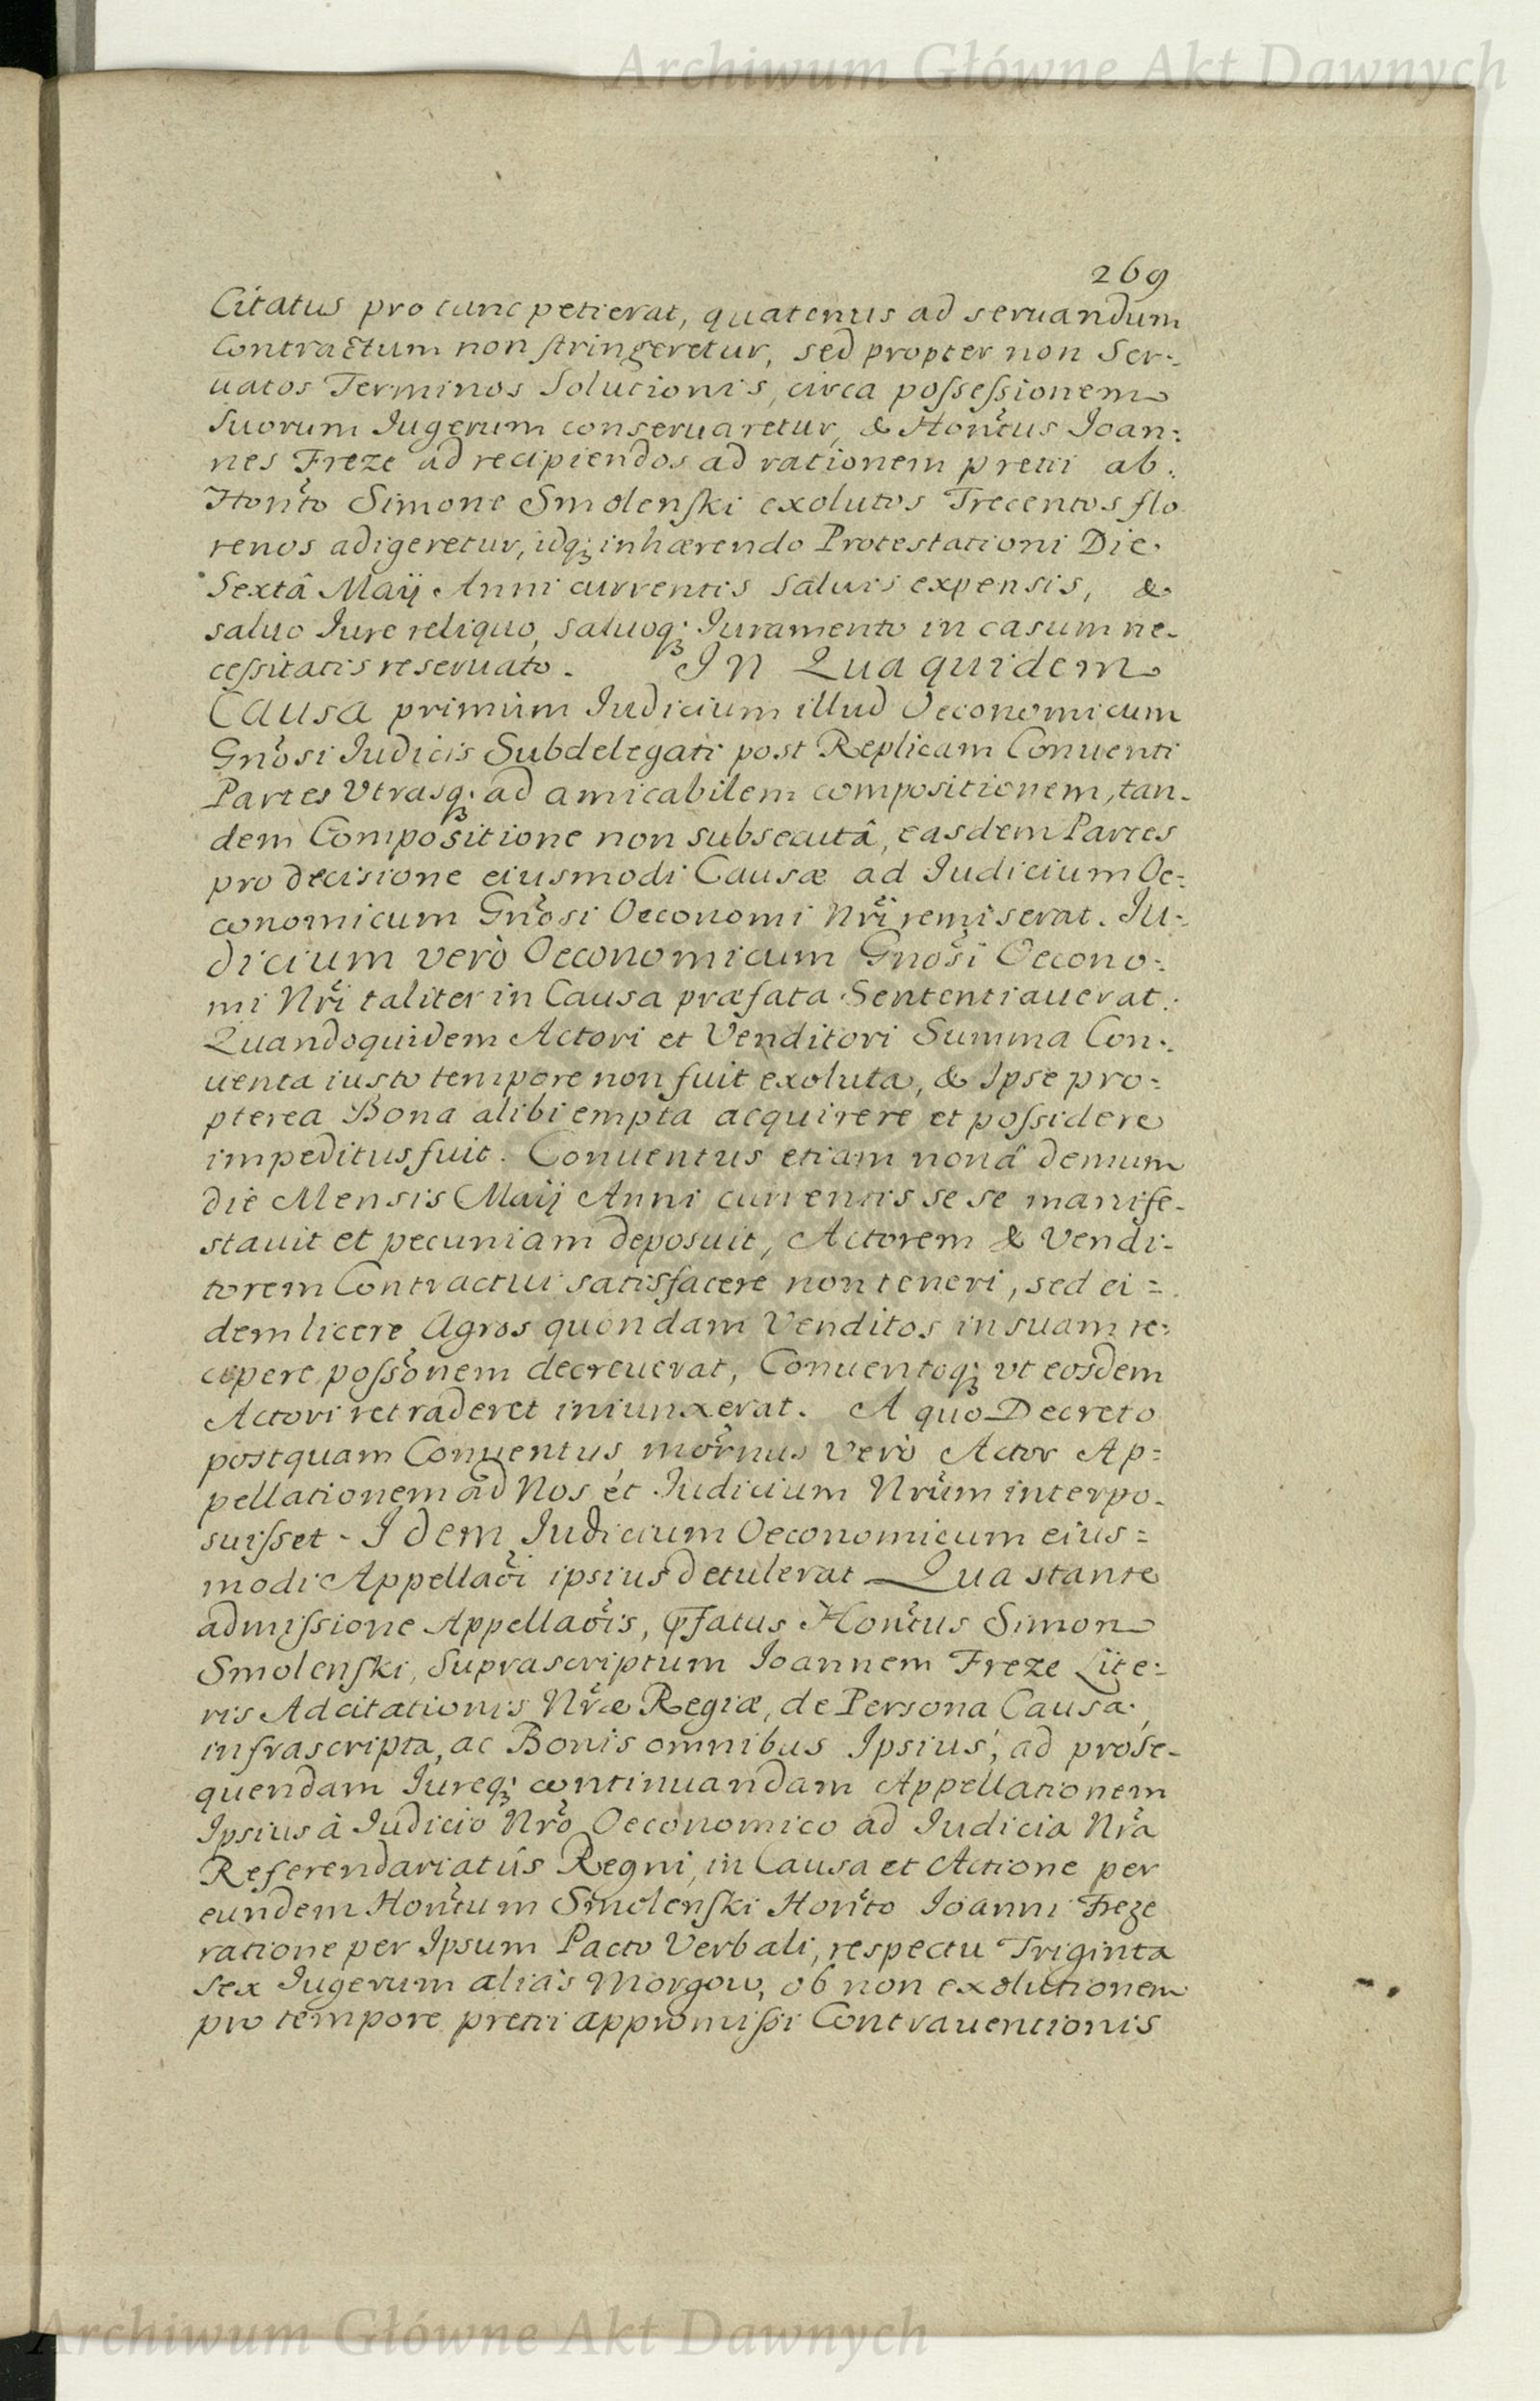 Archiwum Główne Akt Dawnych
269
Citatus pro tunc petierat, quatenus ad seruandum
Contractum non stringeretur, sed propter non Ser-
uatos Terminos Solutionis, circa possessionem
Suorum Jugerum conseruaretur, & Hontus Joan-
nes Freze ad recipiendos ad rationem pretii ab
Honto Simone Smolenski exolutos Trecentos flo
renos adigeretur, idq; inhærendo Protestationi Die
Sextâ Maij Anni currentis saluis expensis, &
saluo Jure reliquo, saluoq; Juramento in casum ne-
cessitatis reseruato. In Qua quidem
Causa primùm Judicium illud Oeconomicum
Gnosi Judicis Subdelegati post Replicam Conuenti
Partes Vtrasq; ad amicabilem compositionem, tan-
dem Compositione non subsecutâ, easdem Partes
pro decisione eiusmodi Causæ ad Judicium Oe-
conomicum Gnosi Oeconomi Nri remiserat. Ju-
dicium verò Oeconomicum Gnosi Oecono-
mi Nri taliter in Causa præfata Sententiauerat.
Quandoquidem Actori et Venditori Summa Con-
uenta iusto tempore non fuit exoluta, & Ipse pro-
pterea Bona alibi empta acquirere et possidere
impeditus fuit. Conuentus etiam nonâ demum
die Mensis Maij Anni currentis se se manife-
stauit et pecuniam deposuit, Actorem & Vendi-
torem Contractui satisfacere non teneri, sed ei=
dem licere Agros quondam Venditos in suam re-
cipere possonem decreuerat, Conuentoq; vt eosdem
Actori retraderet iniunxerat. A quo Decreto
postquam Conuentus mornus verò Actor Ap=
pellationem ad Nos et Judicium Nrum interpo-
suisset - Idem Judicium Oeconomicum eius=
modi Appellaoi ipsius detulerat Qua stante
admissione Appellaois, pfatus Hontus Simon
Smolenski, Suprascriptum Joannem Freze Lite-
ris Adcitationis Nræ Regiæ, de Persona Causa
infrascripta, ac Bonis omnibus Ipsius, ad prose-
quendam Jureq; continuandam Appellationem
Ipsius à Judicio Nro Oeconomico ad Judicia Nra
Referendariatûs Regni, in Causa et Actione per
eundem Hontum Smolenski Honto Joanni Freze
ratione per Ipsum Pacto Verbali, respectu Triginta
sex Jugerum aliàs Morgow, ob non exolutionem
pro tempore pretii appromissi Contrauentionis
Archiwum Główne Akt Dawnych